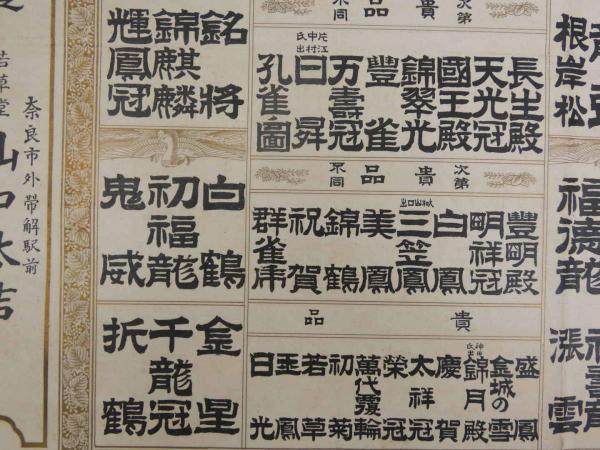 根岸松
次第
貴品
不同
長生殿
天光冠
國王殿
錦翠光
豐雀
万壽冠
日昇
孔雀圖
銘将
錦麒麟
輝鳳冠
福德龍
次第
貴品
不同
豐明殿
明祥冠
白鳳
三笠鳳
美鳳
錦鶴
祝賀
群雀
白鶴
初福龍
鬼威
漲雲
貴品
盛鳳
金城の雪
錦月殿
慶賀
太祥冠
榮冠
萬代覆輪
初菊
若草
玉鳳
日光
金星
千龍冠
折鶴
奈良市外帶解駅前